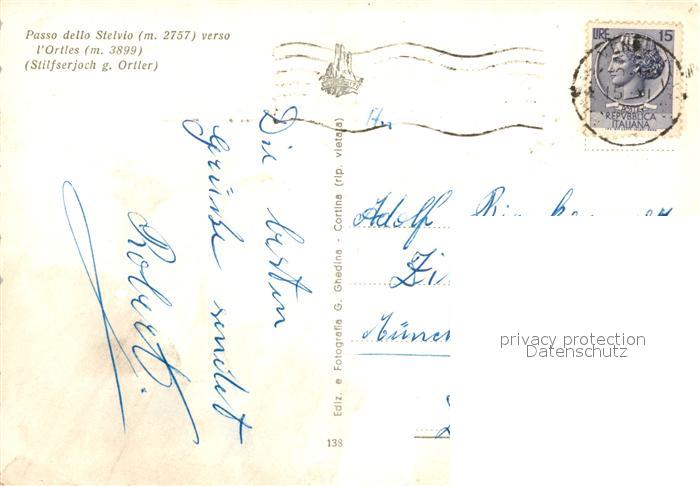 Passo dello Stelvio (m. 2757) verso
l'Ortles (m. 3899)
(Stilfserjoch g. Ortler)
LIRE 15
REPVBBLICA
ITALIANA
Die besten
Grüsse sendet
Robert.
Ediz. e Fotografia G. Ghedina - Cortina (rip. vietata)
138
Adolf
privacy protection
Datenschutz